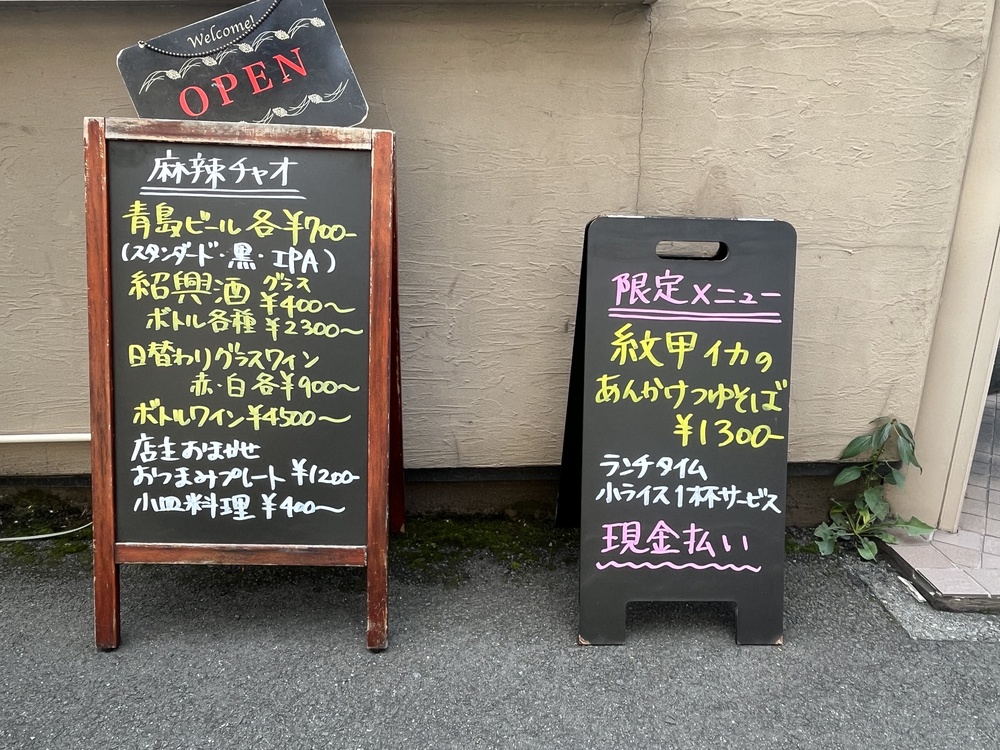 Welcome!
OPEN
麻辣チャオ
青島ビール 各¥700-
(スタンダード・黒・IPA)
紹興酒 グラス ¥400〜
ボトル各種 ¥2300〜
日替わりグラスワイン
赤・白 各¥900〜
ボトルワイン¥4500〜
店主おまかせ
おつまみプレート ¥1200-
小皿料理 ¥400〜
限定メニュー
紋甲イカの
あんかけつゆそば
¥1300-
ランチタイム
小ライス1杯サービス
現金払い